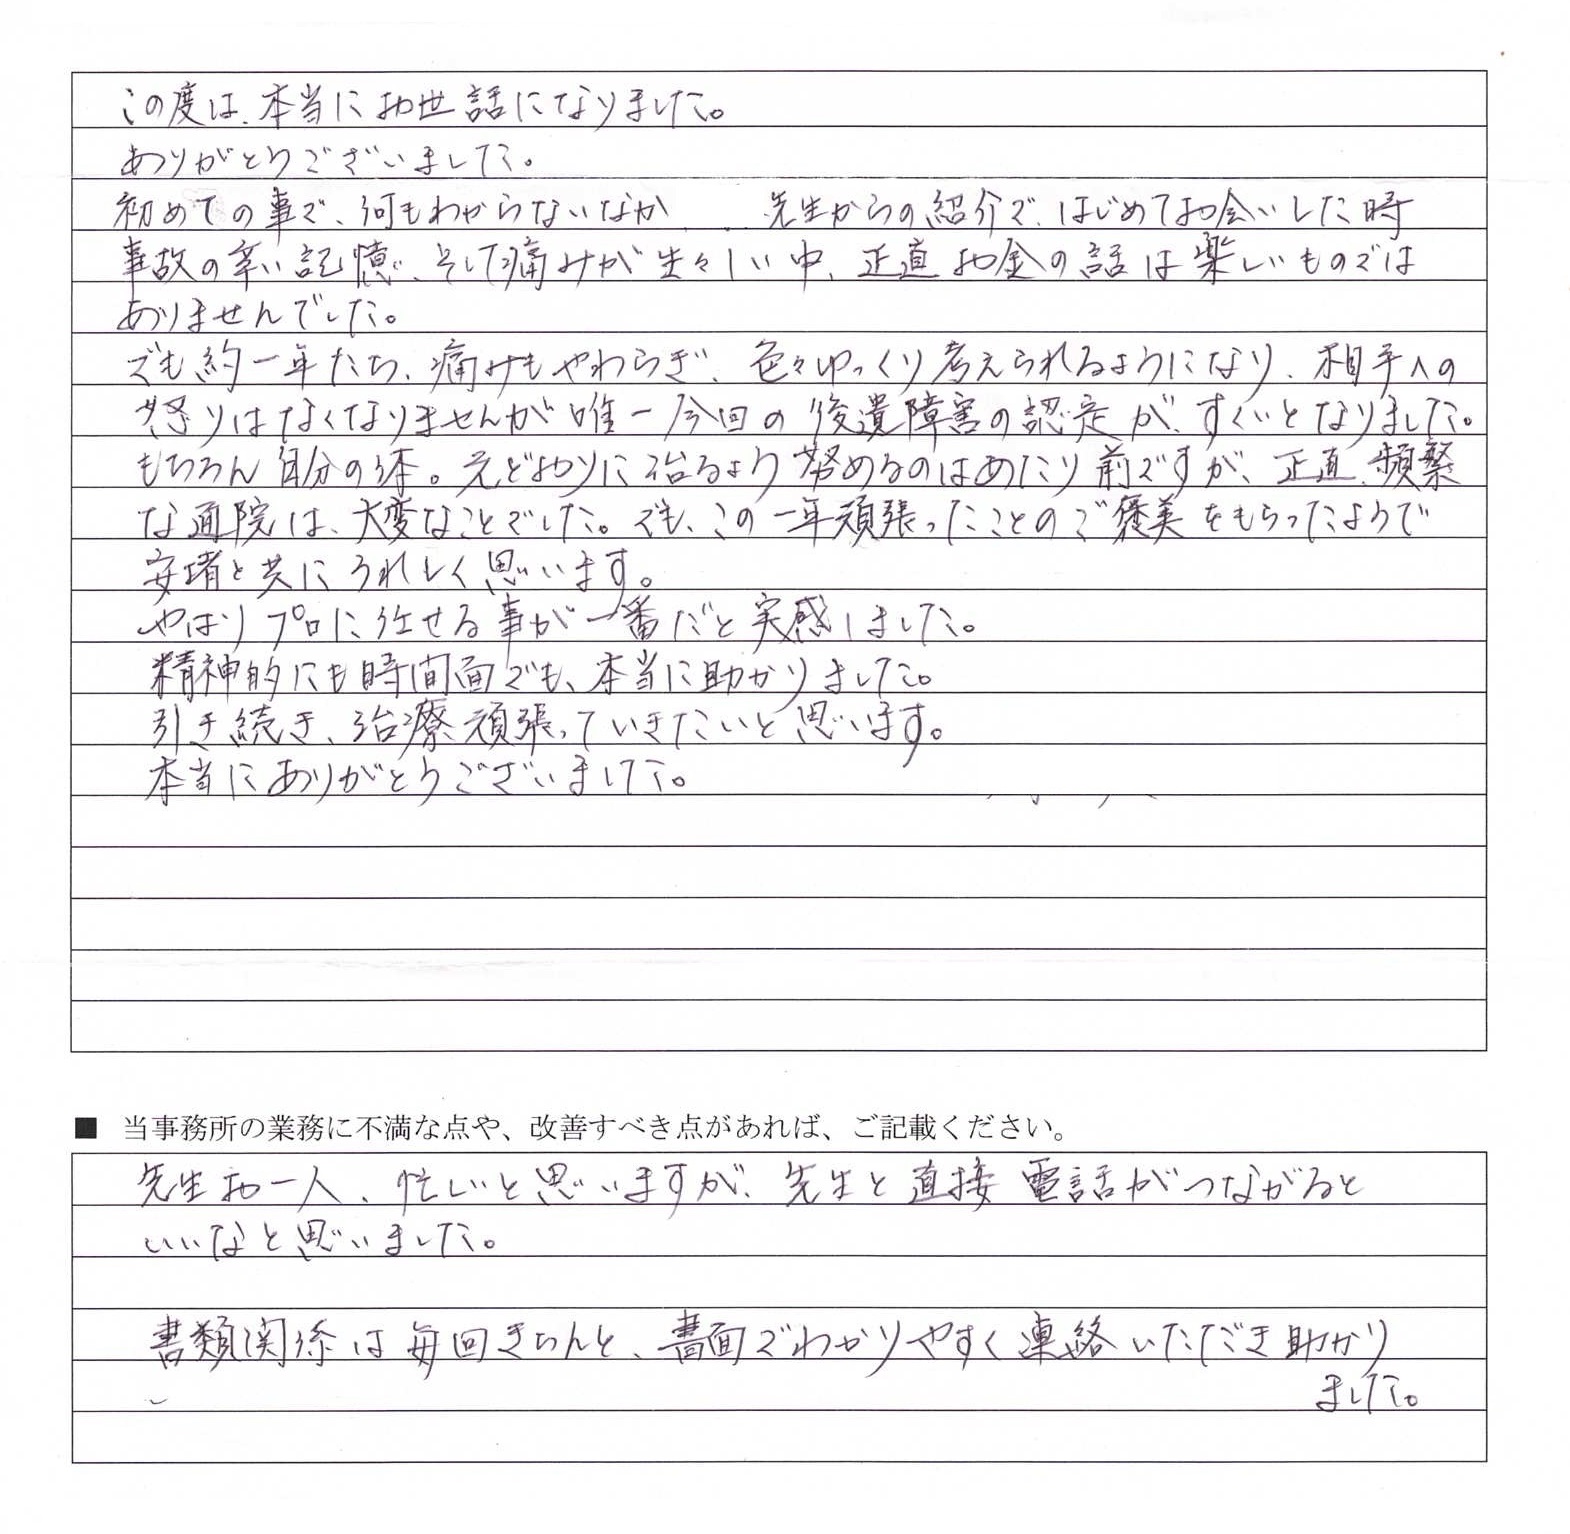 この度は、本当にお世話になりました。
ありがとうございました。
初めての事で、何もわからないなか 先生からの紹介で、はじめてお会いした時
事故の辛い記憶、そして痛みが生々しい中、正直お金の話は楽しいものでは
ありませんでした。
でも約一年たち、痛みもやわらぎ、色々ゆっくり考えられるようになり、相手への
怒りはなくなりませんが唯一今回の後遺障害の認定が、すくいとなりました。
もちろん自分の体。元どおりに治るよう努めるのはあたり前ですが、正直、頻繁
な通院は、大変なことでした。でも、この一年頑張ったことのご褒美をもらったようで
安堵と共にうれしく思います。
やはりプロに任せる事が一番だと実感しました。
精神的にも時間面でも、本当に助かりました。
引き続き、治療頑張っていきたいと思います。
本当にありがとうございました。
■ 当事務所の業務に不満な点や、改善すべき点があれば、ご記載ください。
先生お一人、忙しいと思いますが、先生と直接電話がつながると
いいなと思いました。
書類関係は毎回きちんと、書面でわかりやすく連絡いただき助かり
ました。